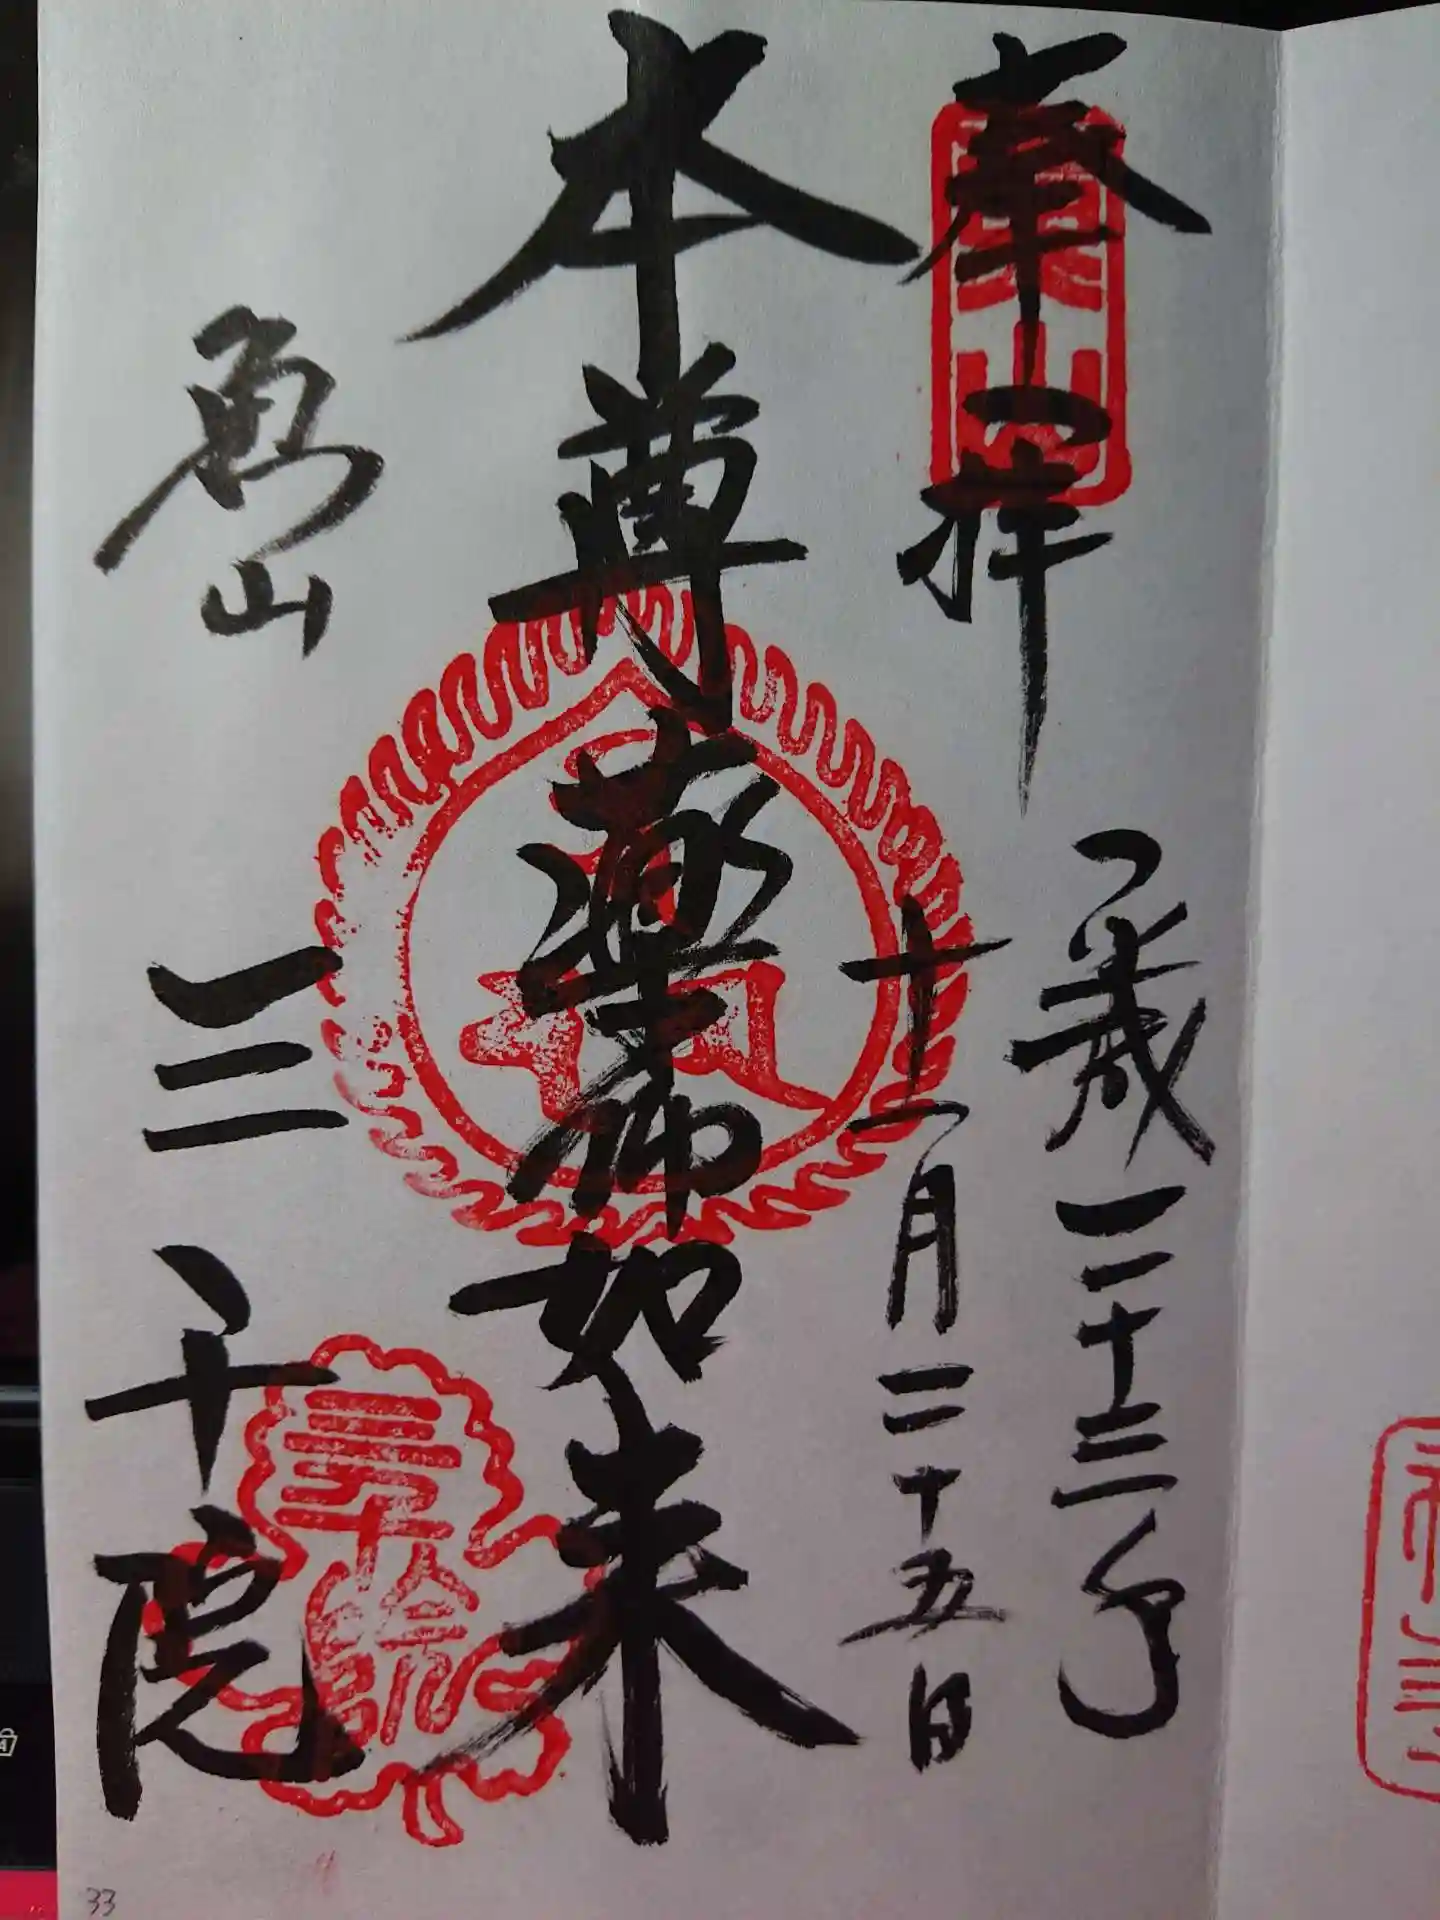 奉拝
平成二十三年
十一月二十五日
本尊薬師如来
魚山
三千院
三千院
33